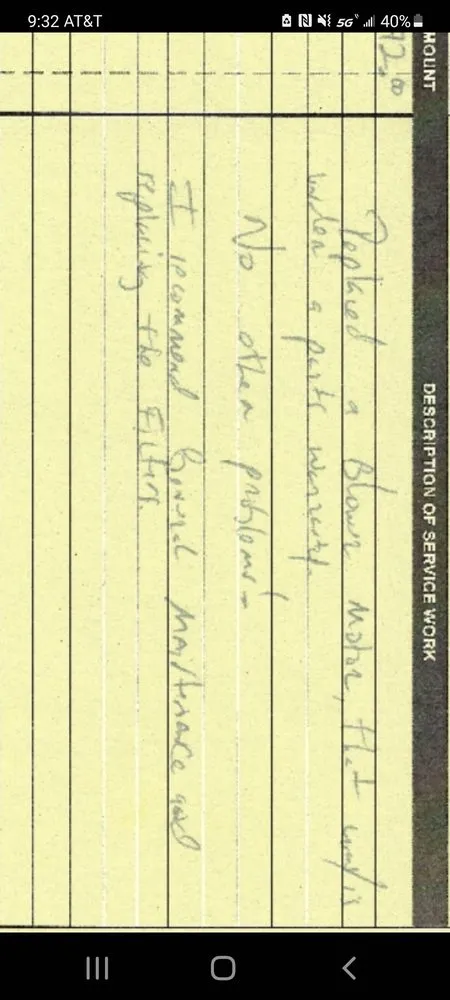 9:32 AT&T
5G
40%
MOUNT
DESCRIPTION OF SERVICE WORK
92.00
Replaced a Blower Motor, that
under a parts warranty.
No other problems.
I recommend General Maintenance and
replacing the Filters.